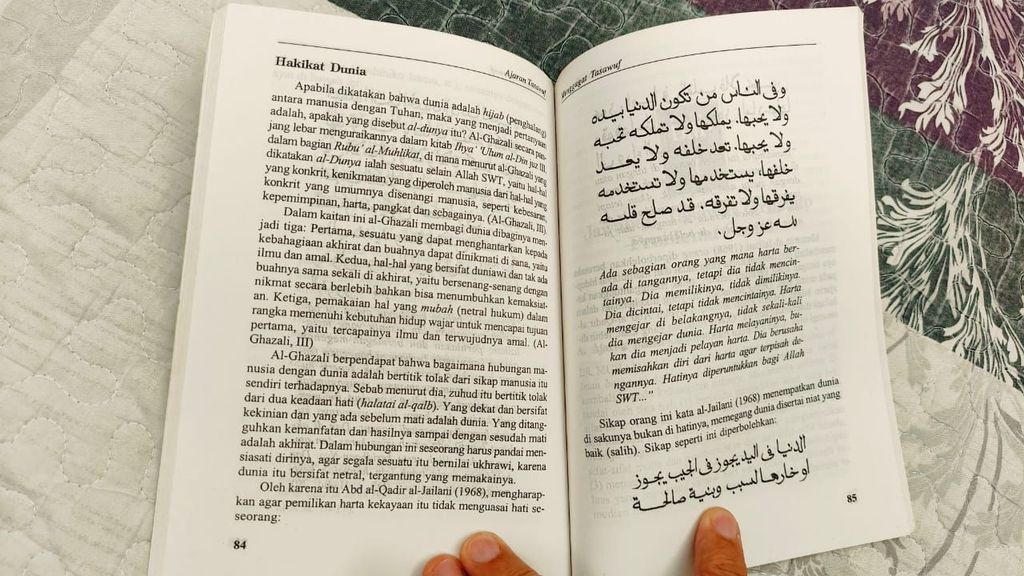 Ajaran Tasawuf
Hakikat Dunia
Apabila dikatakan bahwa dunia adalah hijab (penghalang)
antara manusia dengan Tuhan, maka yang menjadi pertanyaan
adalah, apakah yang disebut al-dunya itu? Al-Ghazali secara pan-
jang lebar menguraikannya dalam kitab Ihya' 'Ulum al-Din juz III,
dalam bagian Rubu' al-Muhlikat, di mana menurut al-Ghazali yang
dikatakan al-Dunya ialah sesuatu selain Allah SWT, yaitu hal-hal
yang konkrit, kenikmatan yang diperoleh manusia dari hal-hal yang
konkrit yang umumnya disenangi manusia, seperti kebesaran,
kepemimpinan, harta, pangkat dan sebagainya. (Al-Ghazali, III)
Dalam kaitan ini al-Ghazali membagi dunia dibaginya men-
jadi tiga: Pertama, sesuatu yang dapat menghantarkan kepada
kebahagiaan akhirat dan buahnya dapat dinikmati di sana, yaitu
ilmu dan amal. Kedua, hal-hal yang bersifat duniawi dan tak ada
buahnya sama sekali di akhirat, yaitu bersenang-senang dengan
nikmat secara berlebih bahkan bisa menumbuhkan kemaksiat-
an. Ketiga, pemakaian hal yang mubah (netral hukum) dalam
rangka memenuhi kebutuhan hidup wajar untuk mencapai tujuan
pertama, yaitu tercapainya ilmu dan terwujudnya amal. (Al-
Ghazali, III)
Al-Ghazali berpendapat bahwa bagaimana hubungan ma-
nusia dengan dunia adalah bertitik tolak dari sikap manusia itu
sendiri terhadapnya. Sebab menurut dia, zuhud itu bertitik tolak
dari dua keadaan hati (halatai al-qalb). Yang dekat dan bersifat
kekinian dan yang ada sebelum mati adalah dunia. Yang ditang-
guhkan kemanfatan dan hasilnya sampai dengan sesudah mati
adalah akhirat. Dalam hubungan ini seseorang harus pandai men-
siasati dirinya, agar segala sesuatu itu bernilai ukhrawi, karena
dunia itu bersifat netral, tergantung yang memakainya.
Oleh karena itu Abd al-Qadir al-Jailani (1968), mengharap-
kan agar pemilikan harta kekayaan itu tidak menguasai hati se-
seorang:
84
Tasawuf
وفى الناس من تكون الدنيا بيده
ولا يحبها، يملكها ولا تملكه تحبه
ولا يحبها، تعد خلفه ولا يعد
خلفها، يستخدمها ولا تستخدمه
يفرقها ولا تفرقه، قد صلح قلبه
لله عز وجل.
Ada sebagian orang yang mana harta ber-
ada di tangannya, tetapi dia tidak mencin-
tainya. Dia memilikinya, tidak dimilikinya.
Dia dicintai, tetapi tidak mencintainya. Harta
mengejar di belakangnya, tidak sekali-kali
dia mengejar dunia. Harta melayaninya, bu-
kan dia menjadi pelayan harta. Dia berusaha
memisahkan diri dari harta agar terpisah de-
ngannya. Hatinya diperuntukkan bagi Allah
SWT..."
Sikap orang ini kata al-Jailani (1968) menempatkan dunia
di sakunya bukan di hatinya, memegang dunia disertai niat yang
baik (salih). Sikap seperti ini diperbolehkan:
الدنيا فى اليد يجوز فى الجيب يجوز
وبنية صالحة
85